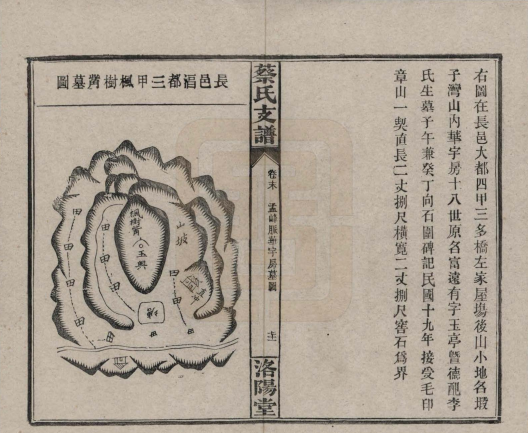 右圖在長邑大都四甲三多橋左家屋塲後山小地名塅
子灣山內華字房十八世原名富遠有字玉亭曁德配李
氏生墓子午兼癸丁向石圍碑記民國十九年接受毛印
章山一契直長二丈捌尺橫寬二丈捌尺窖石爲界
蔡氏支譜
卷末
房墓圖
洛陽堂
長邑㴖都三甲楓樹嘴墓圖
山坡
楓樹
玉興
田
田
田
田
田
田
田
田
田